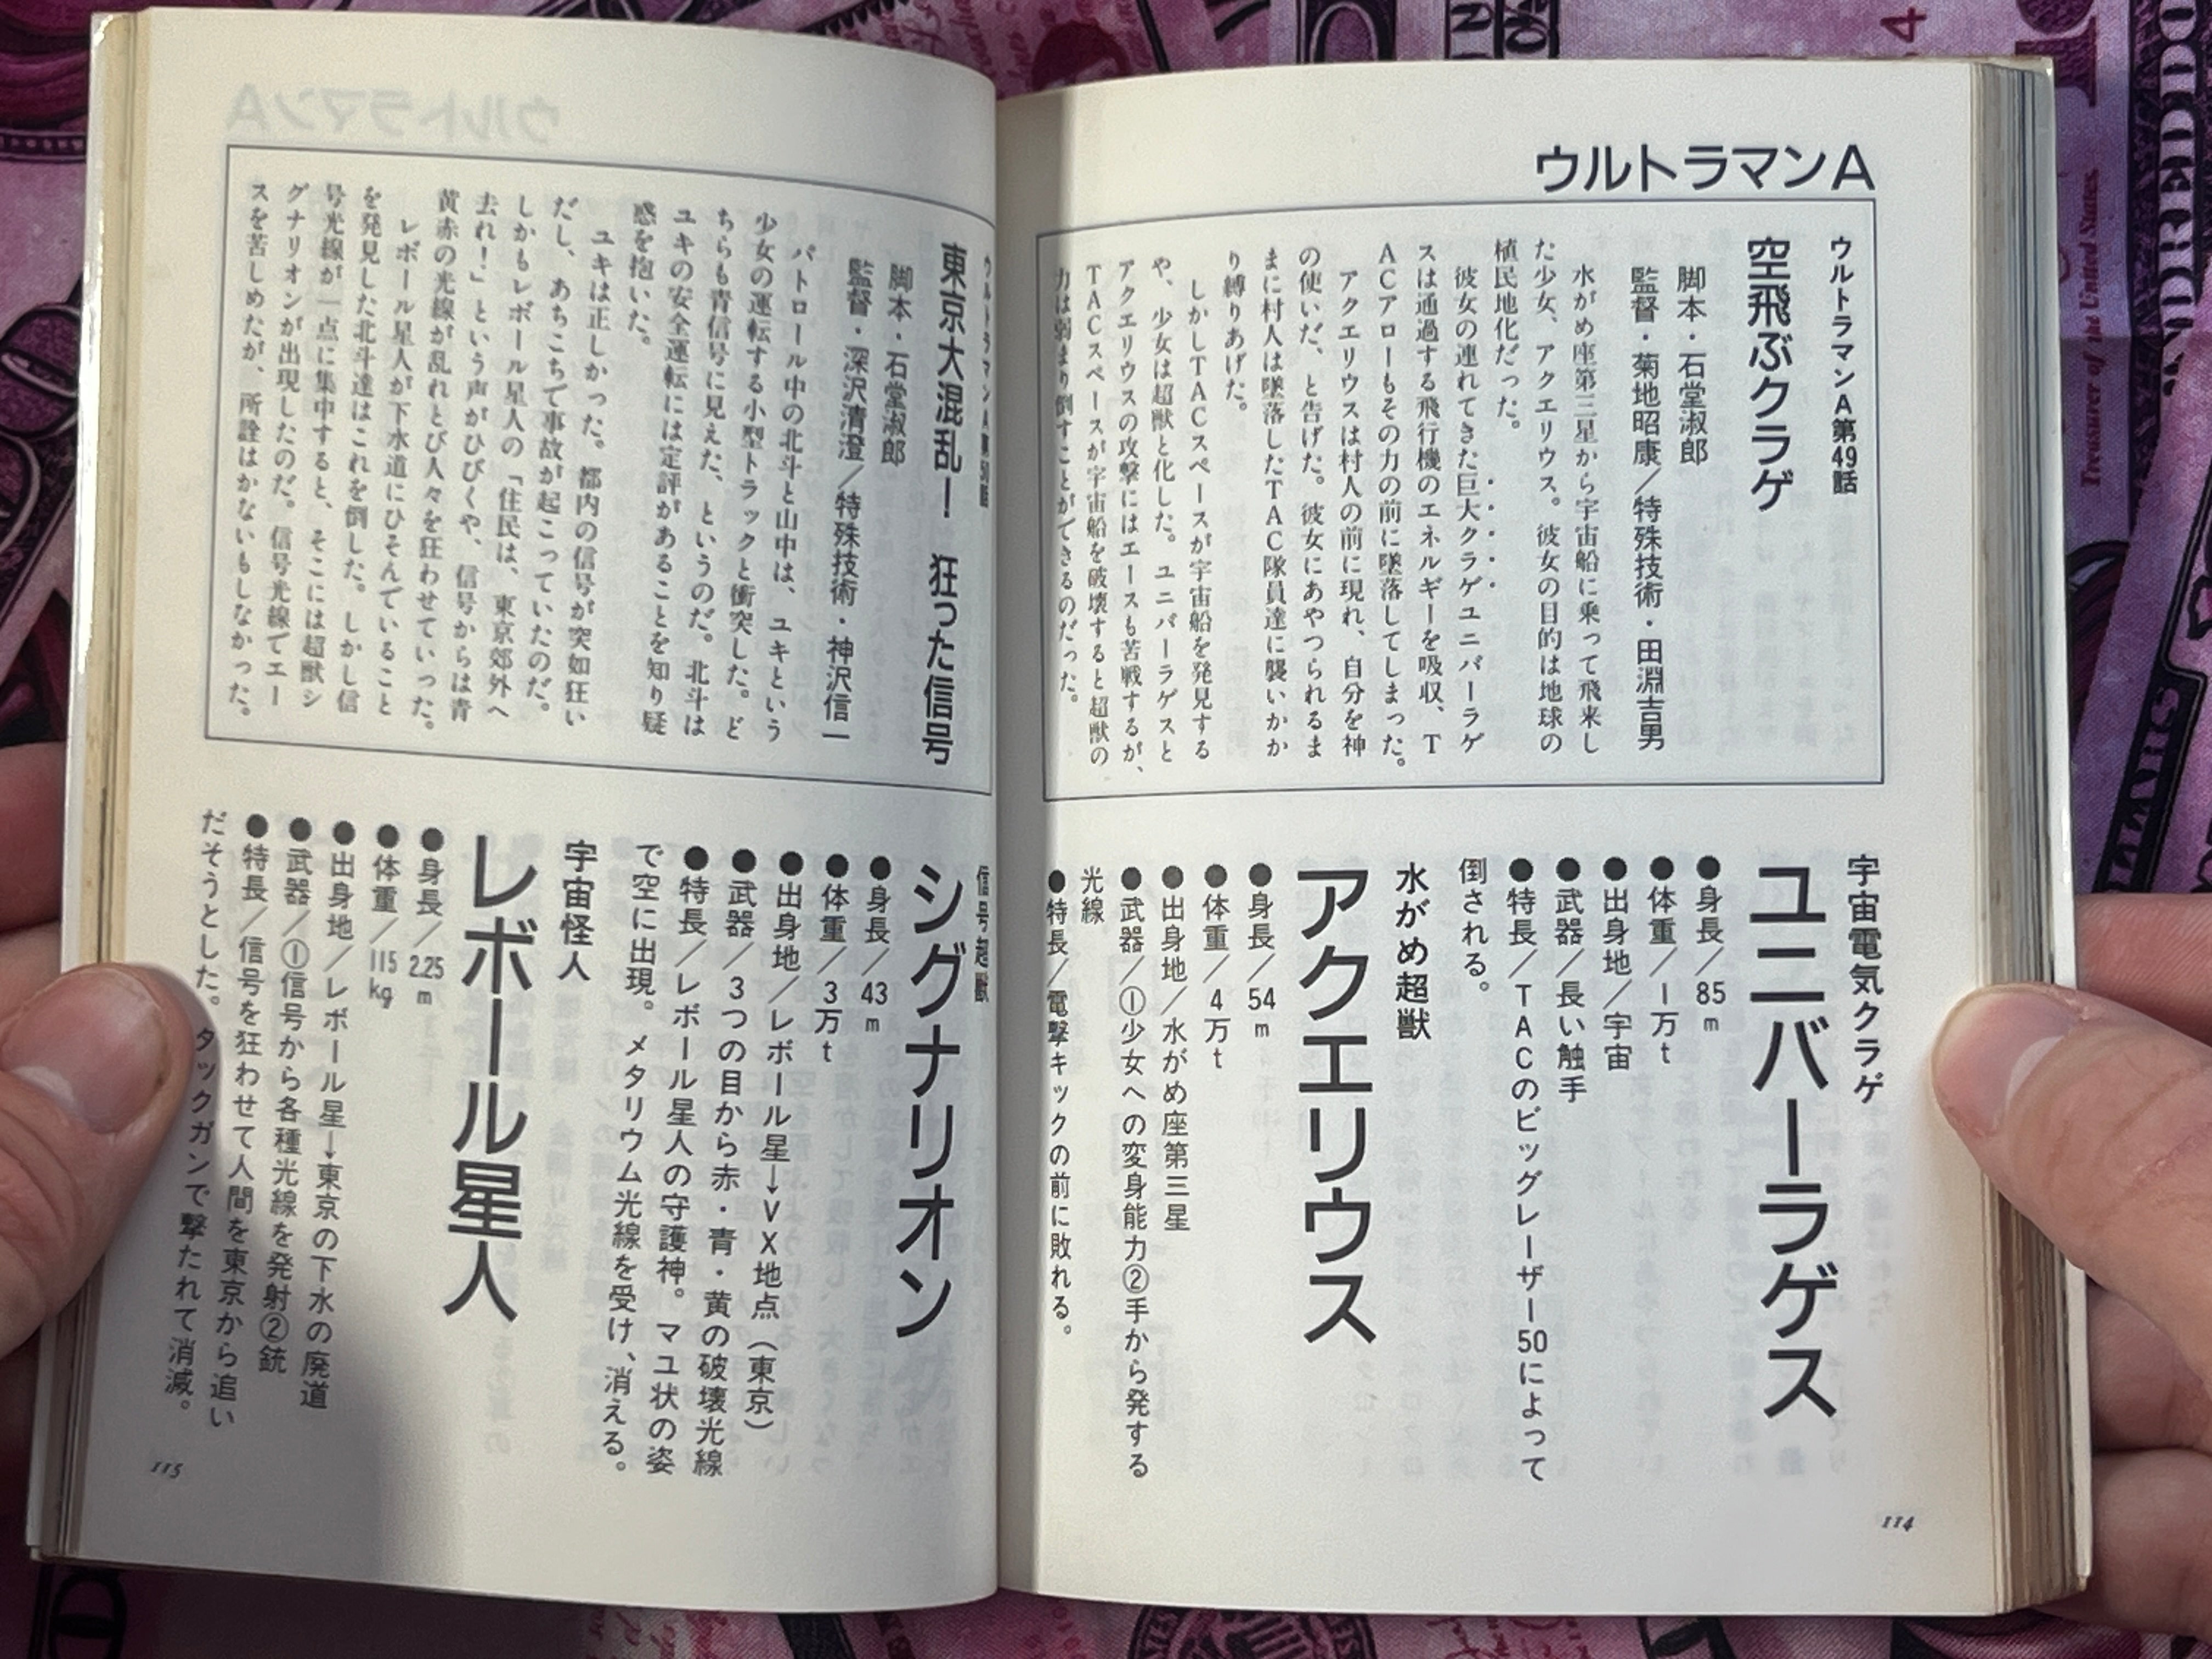 ウルトラマンA
ウルトラマンA第49話
空飛ぶクラゲ
脚本・石堂淑郎
監督・菊地昭康／特殊技術・田淵吉男
水がめ座第三星から宇宙船に乗って飛来し
た少女、アクエリウス。彼女の目的は地球の
植民地化だった。
彼女の連れてきた巨大クラゲユニバーラゲ
スは通過する飛行機のエネルギーを吸収、T
ACアローもその力の前に墜落してしまった。
アクエリウスは村人の前に現れ、自分を神
の使いだ、と告げた。彼女にあやつられるま
まに村人は墜落したTAC隊員達に襲いかか
り縛りあげた。
しかしTACスペースが宇宙船を発見する
や、少女は超獣と化した。ユニバーラゲスと
アクエリウスの攻撃にはエースも苦戦するが、
TACスペースが宇宙船を破壊すると超獣の
力は弱まり倒すことができるのだった。
宇宙電気クラゲ
ユニバーラゲス
●身長／85m
●体重／1万t
●出身地／宇宙
●武器／長い触手
●特長／TACのビッグレーザー50によって
倒される。
水がめ超獣
アクエリウス
●身長／54m
●体重／4万t
●出身地／水がめ座第三星
●武器／①少女への変身能力②手から発する
光線
●特長／電撃キックの前に敗れる。
114
ウルトラマンA第50話
東京大混乱！　狂った信号
脚本・石堂淑郎
監督・深沢清澄／特殊技術・神沢信一
パトロール中の北斗と山中は、ユキという
少女の運転する小型トラックと衝突した。ど
ちらも青信号に見えた、というのだ。北斗は
ユキの安全運転には定評があることを知り疑
惑を抱いた。
ユキは正しかった。都内の信号が突如狂い
だし、あちこちで事故が起こっていたのだ。
しかもレボール星人の「住民は、東京郊外へ
去れ！」という声がひびくや、信号からは青
黄赤の光線が乱れとび人々を狂わせていった。
レボール星人が下水道にひそんでいること
を発見した北斗達はこれを倒した。しかし信
号光線が一点に集中すると、そこには超獣シ
グナリオンが出現したのだ。信号光線でエー
スを苦しめたが、所詮はかないもしなかった。
信号超獣
シグナリオン
●身長／43m
●体重／3万t
●出身地／レボール星→VX地点（東京）
●武器／3つの目から赤・青・黄の破壊光線
●特長／レボール星人の守護神。マユ状の姿
で空に出現。メタリウム光線を受け、消える。
宇宙怪人
レボール星人
●身長／2.25m
●体重／115kg
●出身地／レボール星→東京の下水の廃道
●武器／①信号から各種光線を発射②銃
●特長／信号を狂わせて人間を東京から追い
だそうとした。タックガンで撃たれて消滅。
115